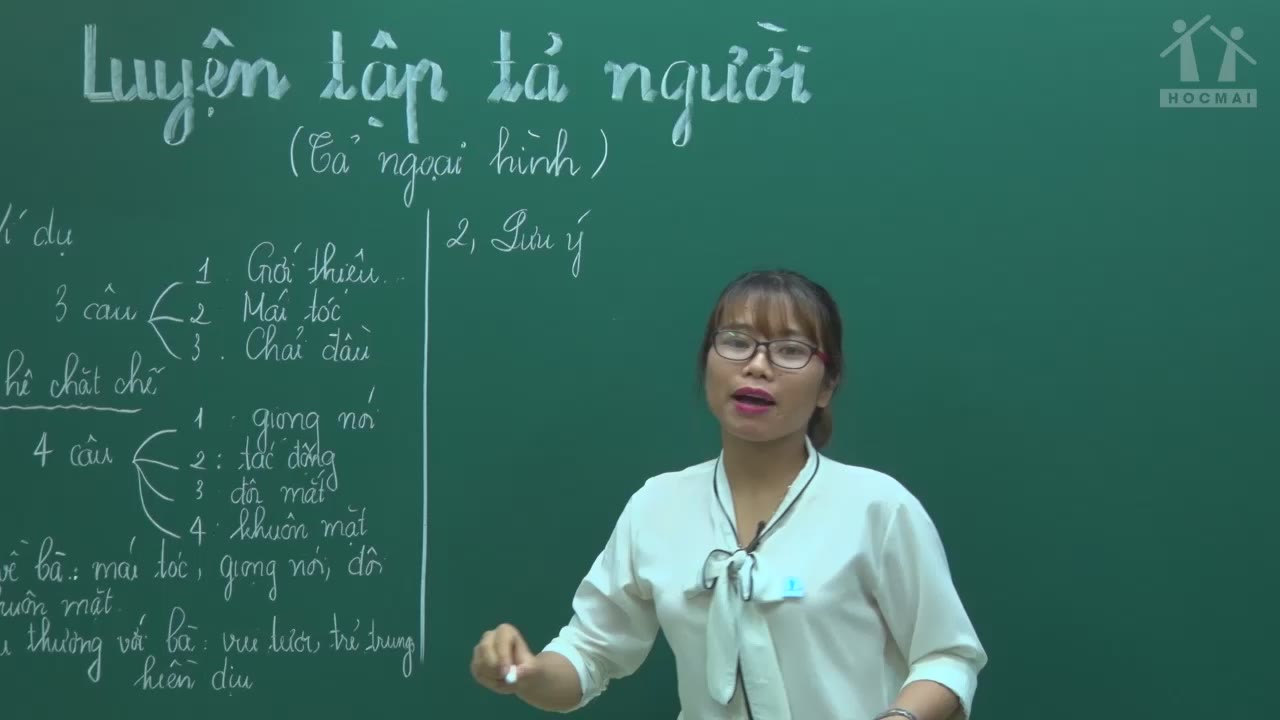 Luyện tập tả người
(Tả ngoại hình)
HOCMAI
Ví dụ
3 câu
1 : Giới thiệu...
2 Mái tóc
3 . Chải đầu
hệ chặt chẽ
4 câu
1 : giọng nói
2 : tác động
3 đôi mắt
4 : khuôn mặt
về bà : mái tóc, giọng nói, đôi
khuôn mặt.
thương với bà : vui tươi, trẻ trung
hiền dịu
2, Lưu ý